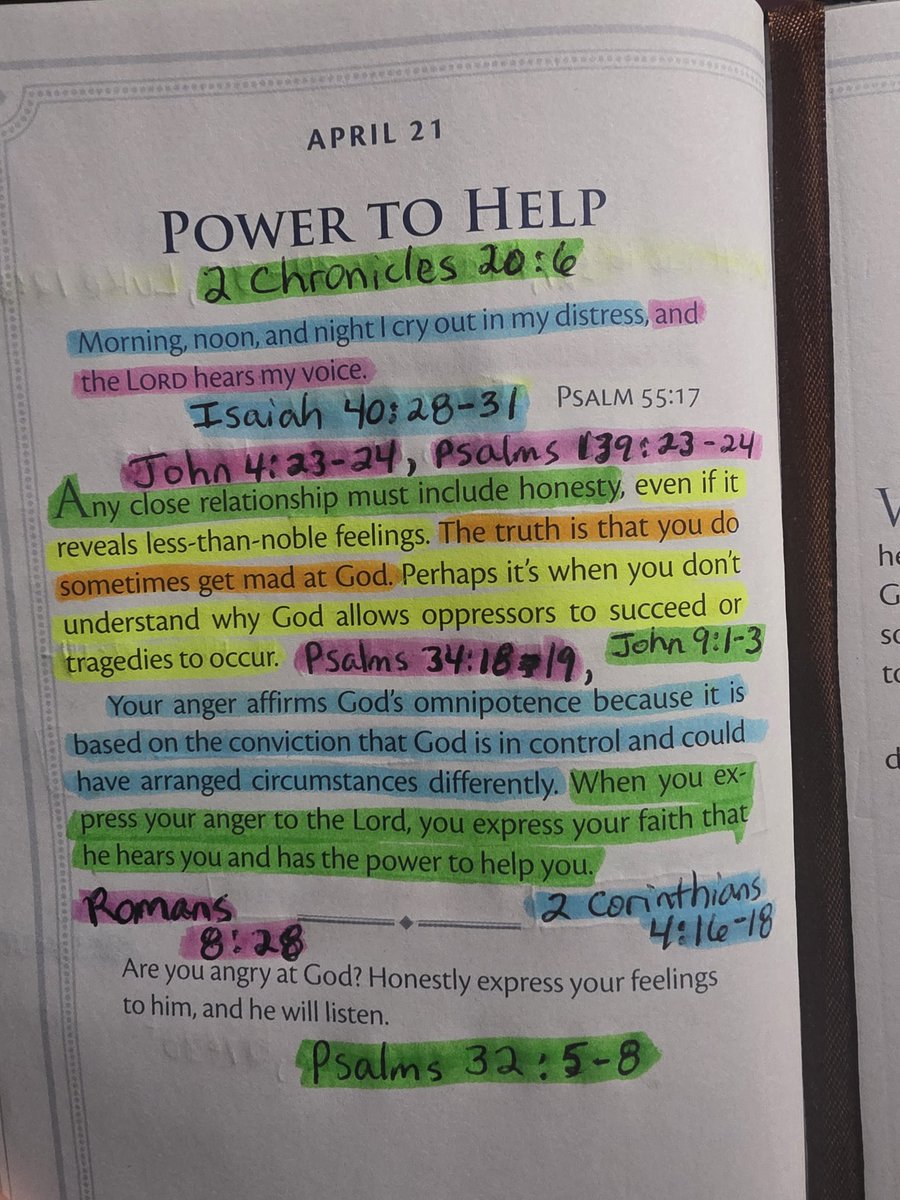 APRIL 21
POWER TO HELP
2 Chronicles 20:6
Morning, noon, and night I cry out in my distress, and
the LORD hears my voice.
Isaiah 40:28-31 PSALM 55:17
John 4:23-24, Psalms 139:23-24
Any close relationship must include honesty, even if it
reveals less-than-noble feelings. The truth is that you do
sometimes get mad at God. Perhaps it's when you don't
understand why God allows oppressors to succeed or
tragedies to occur. Psalms 34:18-19, John 9:1-3
Your anger affirms God's omnipotence because it is
based on the conviction that God is in control and could
have arranged circumstances differently. When you ex-
press your anger to the Lord, you express your faith that
he hears you and has the power to help you.
Romans 2 Corinthians
8:28 4:16-18
Are you angry at God? Honestly express your feelings
to him, and he will listen.
Psalms 32:5-8